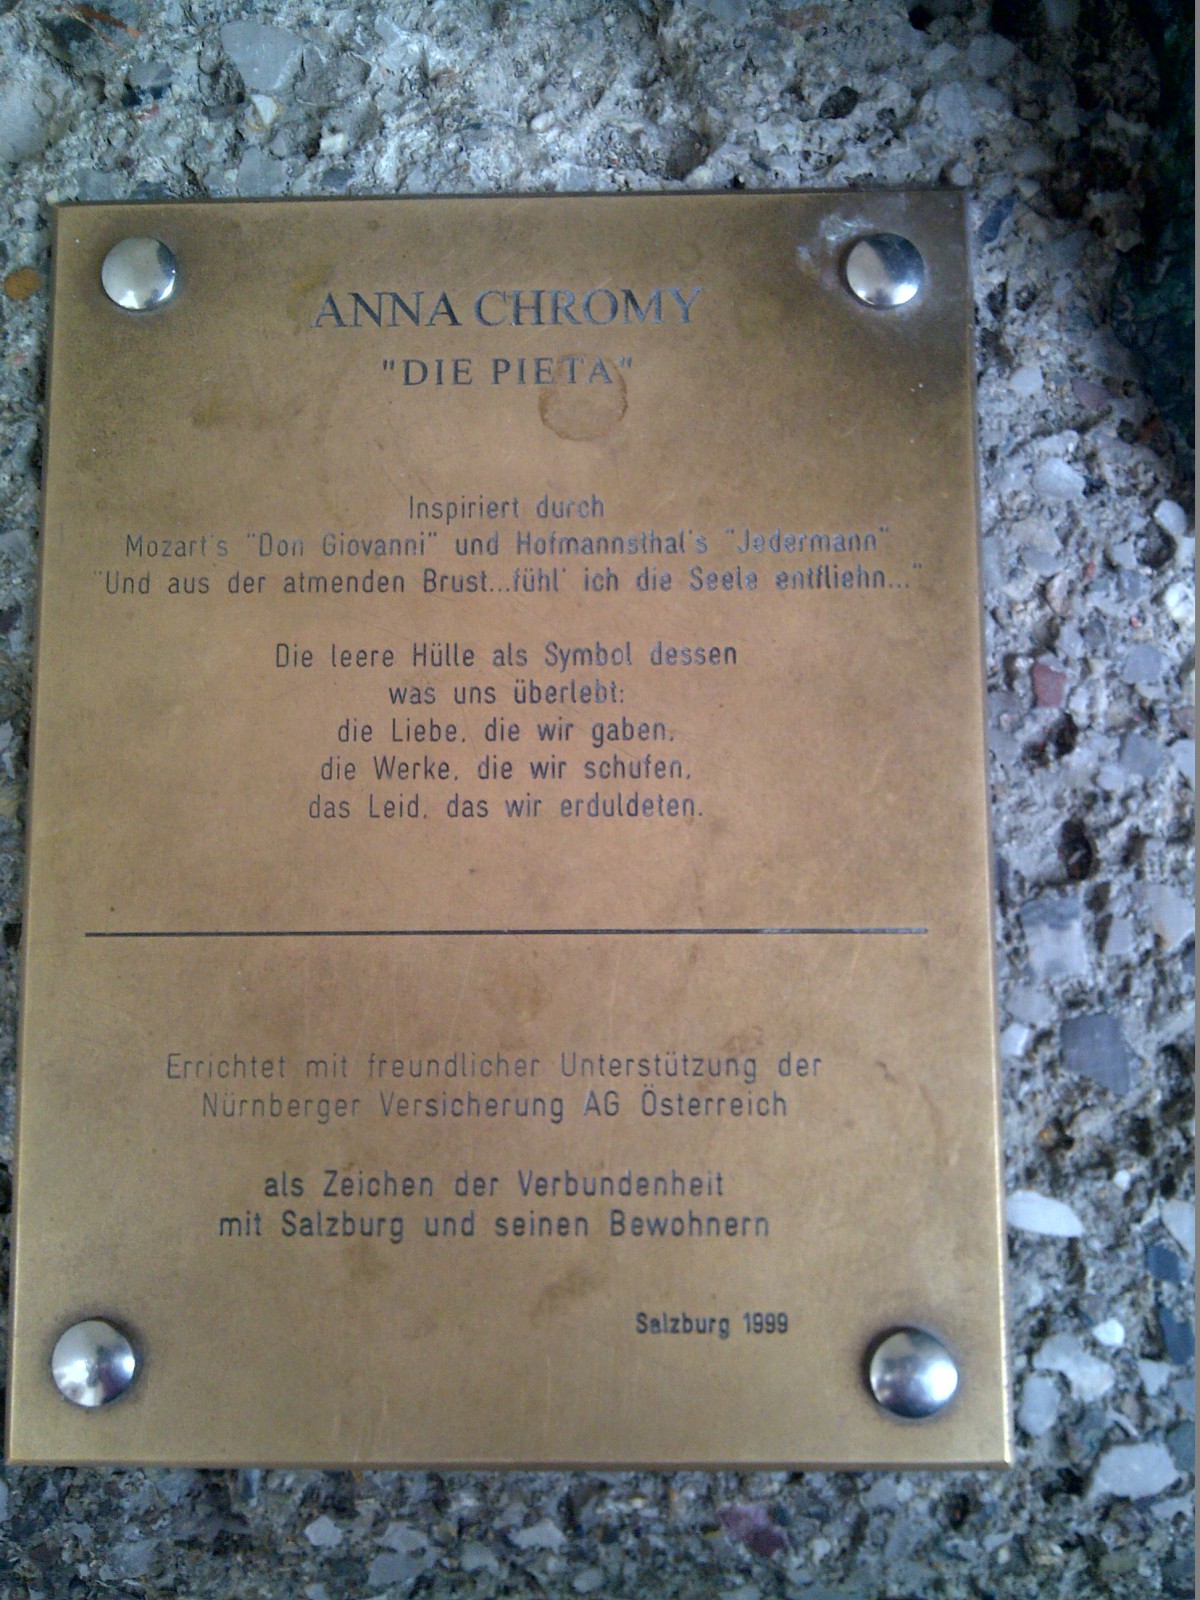 ANNA CHROMY
"DIE PIETA"
Inspiriert durch
Mozart's "Don Giovanni" und Hofmannsthal's "Jedermann"
"Und aus der atmenden Brust...fühl' ich die Seele entfliehn..."
Die leere Hülle als Symbol dessen
was uns überlebt:
die Liebe, die wir gaben,
die Werke, die wir schufen,
das Leid, das wir erduldeten.
Errichtet mit freundlicher Unterstützung der
Nürnberger Versicherung AG Österreich
als Zeichen der Verbundenheit
mit Salzburg und seinen Bewohnern
Salzburg 1999